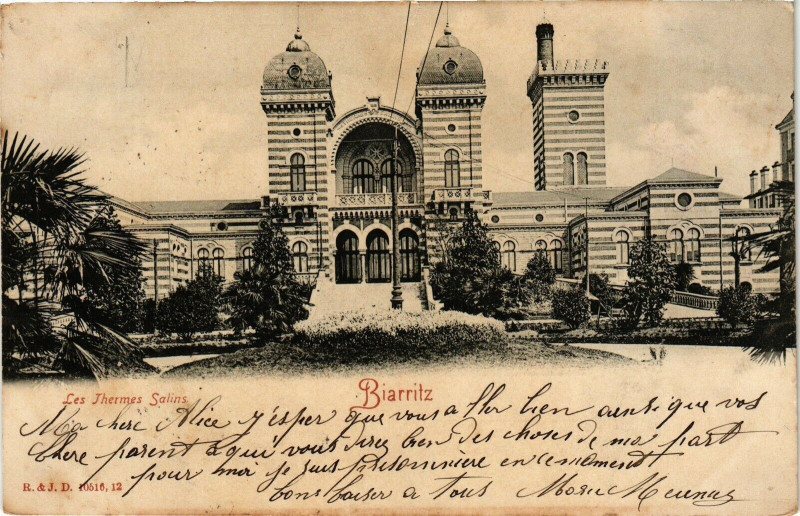 Les Thermes Salins
Biarritz
Ma chere Alice j'esper que vous aller bien ainsi que vos
Chere parent a qui vous direz bien des choses de ma part
pour moi je suis prisonniere en ce moment
bons baiser a tous Marie
R. & J. D. 10516, 12